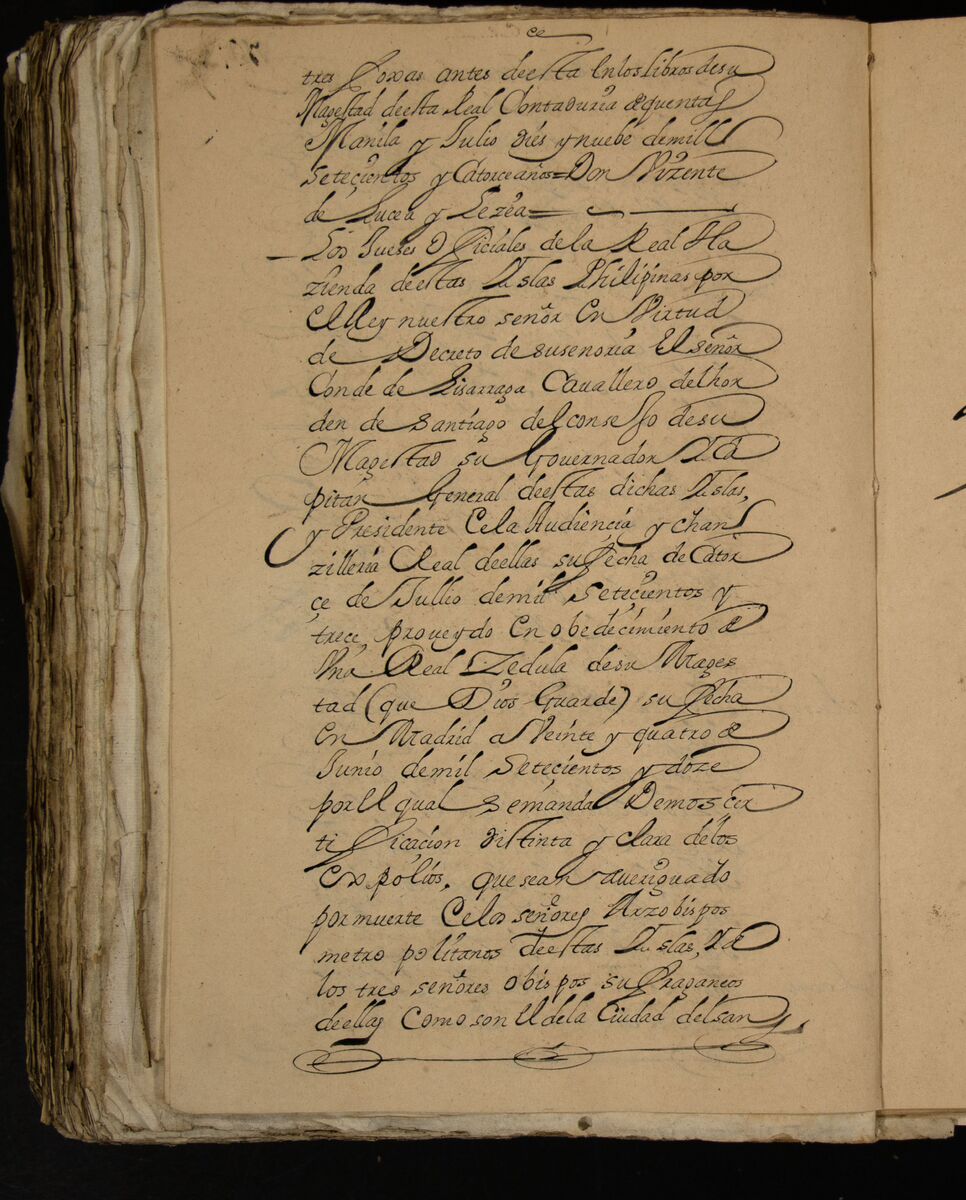 ce
tres foxas antes deesta Enlos libros desu
Magestad deesta Real Contaduria de quentas
Manila y Julio diés y nuebe demill
setecientos y Catorce años = Don Vizente
de Lucea y Lezea =
Los Jueses Oficiales de la Real Ha
zienda deestas Yslas Philipinas por
el Rey nuestro señor En Virtud
de Decreto de susenoria El señor
Conde de Lisarraga Cavallero delhor
den de Santiago del consejo desu
Magestad su Governador Y Ca
pitan General deestas dichas Yslas,
y Presidente Cela Audiencia y chan
zilleria Real deellas su fecha de Cator
çe de Jullio demil setecientos y
trece, proveydo En obedecimiento de
Vna Real Zedula desu Mages
tad (que Dios Guarde) su fecha
En Madrid a Veinte y quatro de
Junio demil setecientos y doze
por El qual semanda Demos cer
tificacion distinta y clara delos
Expolios, quesean averiguado
pormuerte Celos señores Arzobispos
metropolitanos deestas Yslas, Y de
los tres señores obispos sufraganeos
deellas Como son El dela Ciudad delsan